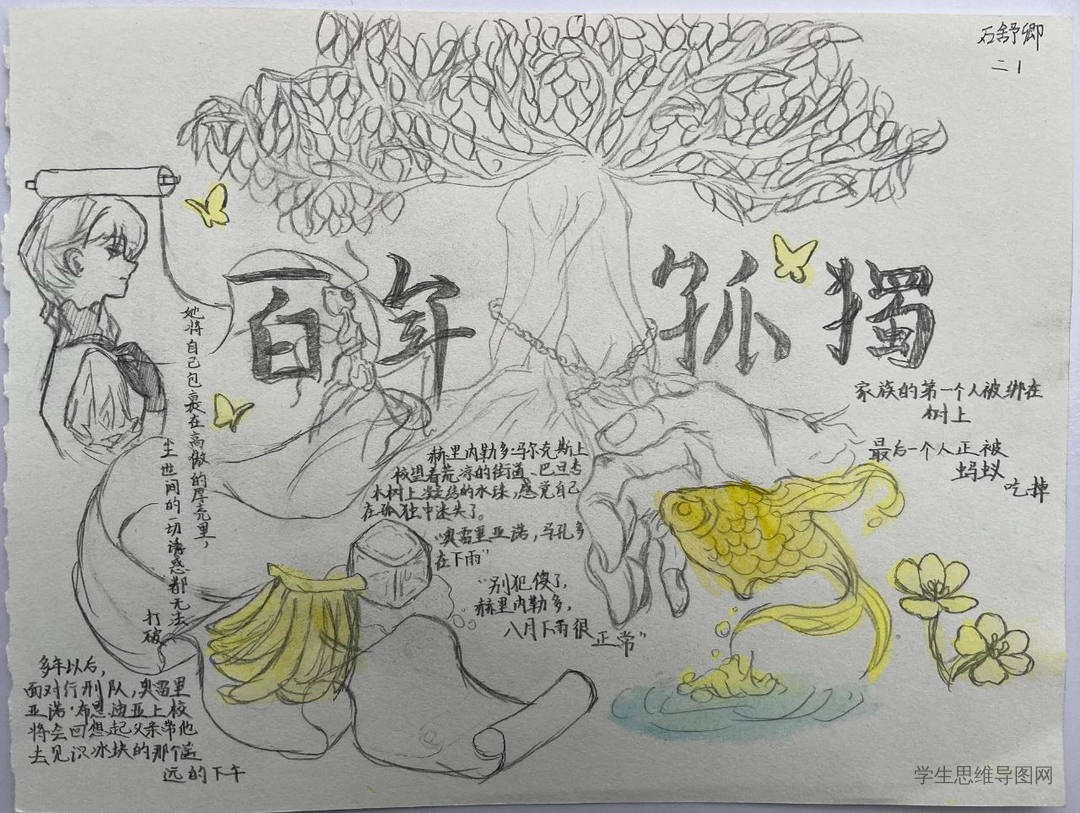 石舒卿
二1
百年孤獨
她将自己包裹在高傲的厚壳里，
尘世间的一切诱惑都无法
打破
家族的第一个人被绑在
树上
最后一个人正被
蚂蚁
吃掉
赫里内勒多·马尔克斯上
校望着荒凉的街道、巴旦杏
木树上凝结的水珠，感觉自己
在孤独中迷失了。
“奥雷里亚诺，马孔多
在下雨”
“别犯傻了，
赫里内勒多，
八月下雨很
正常”
多年以后，
面对行刑队，奥雷里
亚诺·布恩迪亚上校
将会回想起父亲带他
去见识冰块的那个遥
远的下午
学生思维导图网